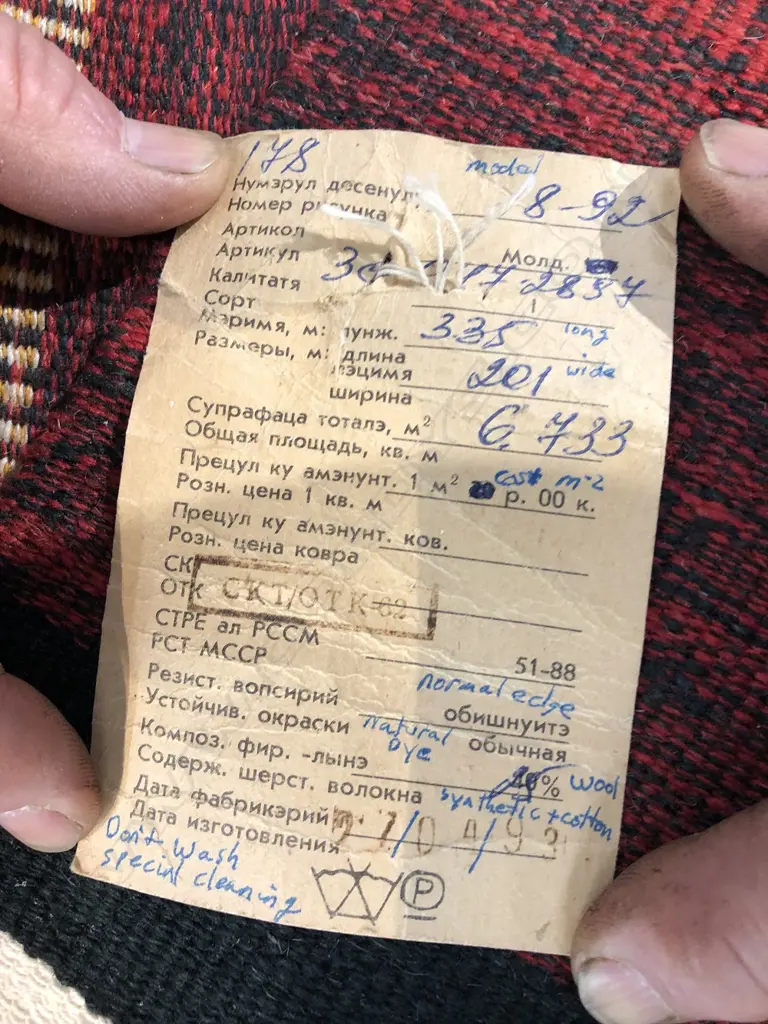 178 model
Нумэрул десенулуй 8-92
Номер рисунка
Артикол Молд.
Артикул 2837
Калитатя I
Сорт
Мэримя, м: лунж. 335 long
Размеры, м: длина
лэцимя 201 wide
ширина
Супрафаца тоталэ, м² 6,733
Общая площадь, кв. м
Прецул ку амэнунт. 1 м² cost m-2 р. 00 к.
Розн. цена 1 кв. м
Прецул ку амэнунт. ков.
Розн. цена ковра
СК
ОТК СКТ/ОТК-62
СТРЕ ал РССМ
РСТ МССР 51-88
Резист. вопсирий normal edge обишнуитэ
Устойчив. окраски natural dye обычная
Композ. фир. -лынэ % wool
Содерж. шерст. волокна synthetic + cotton
Дата фабрикэрий
Дата изготовления /04/93
Don't wash
special cleaning
P